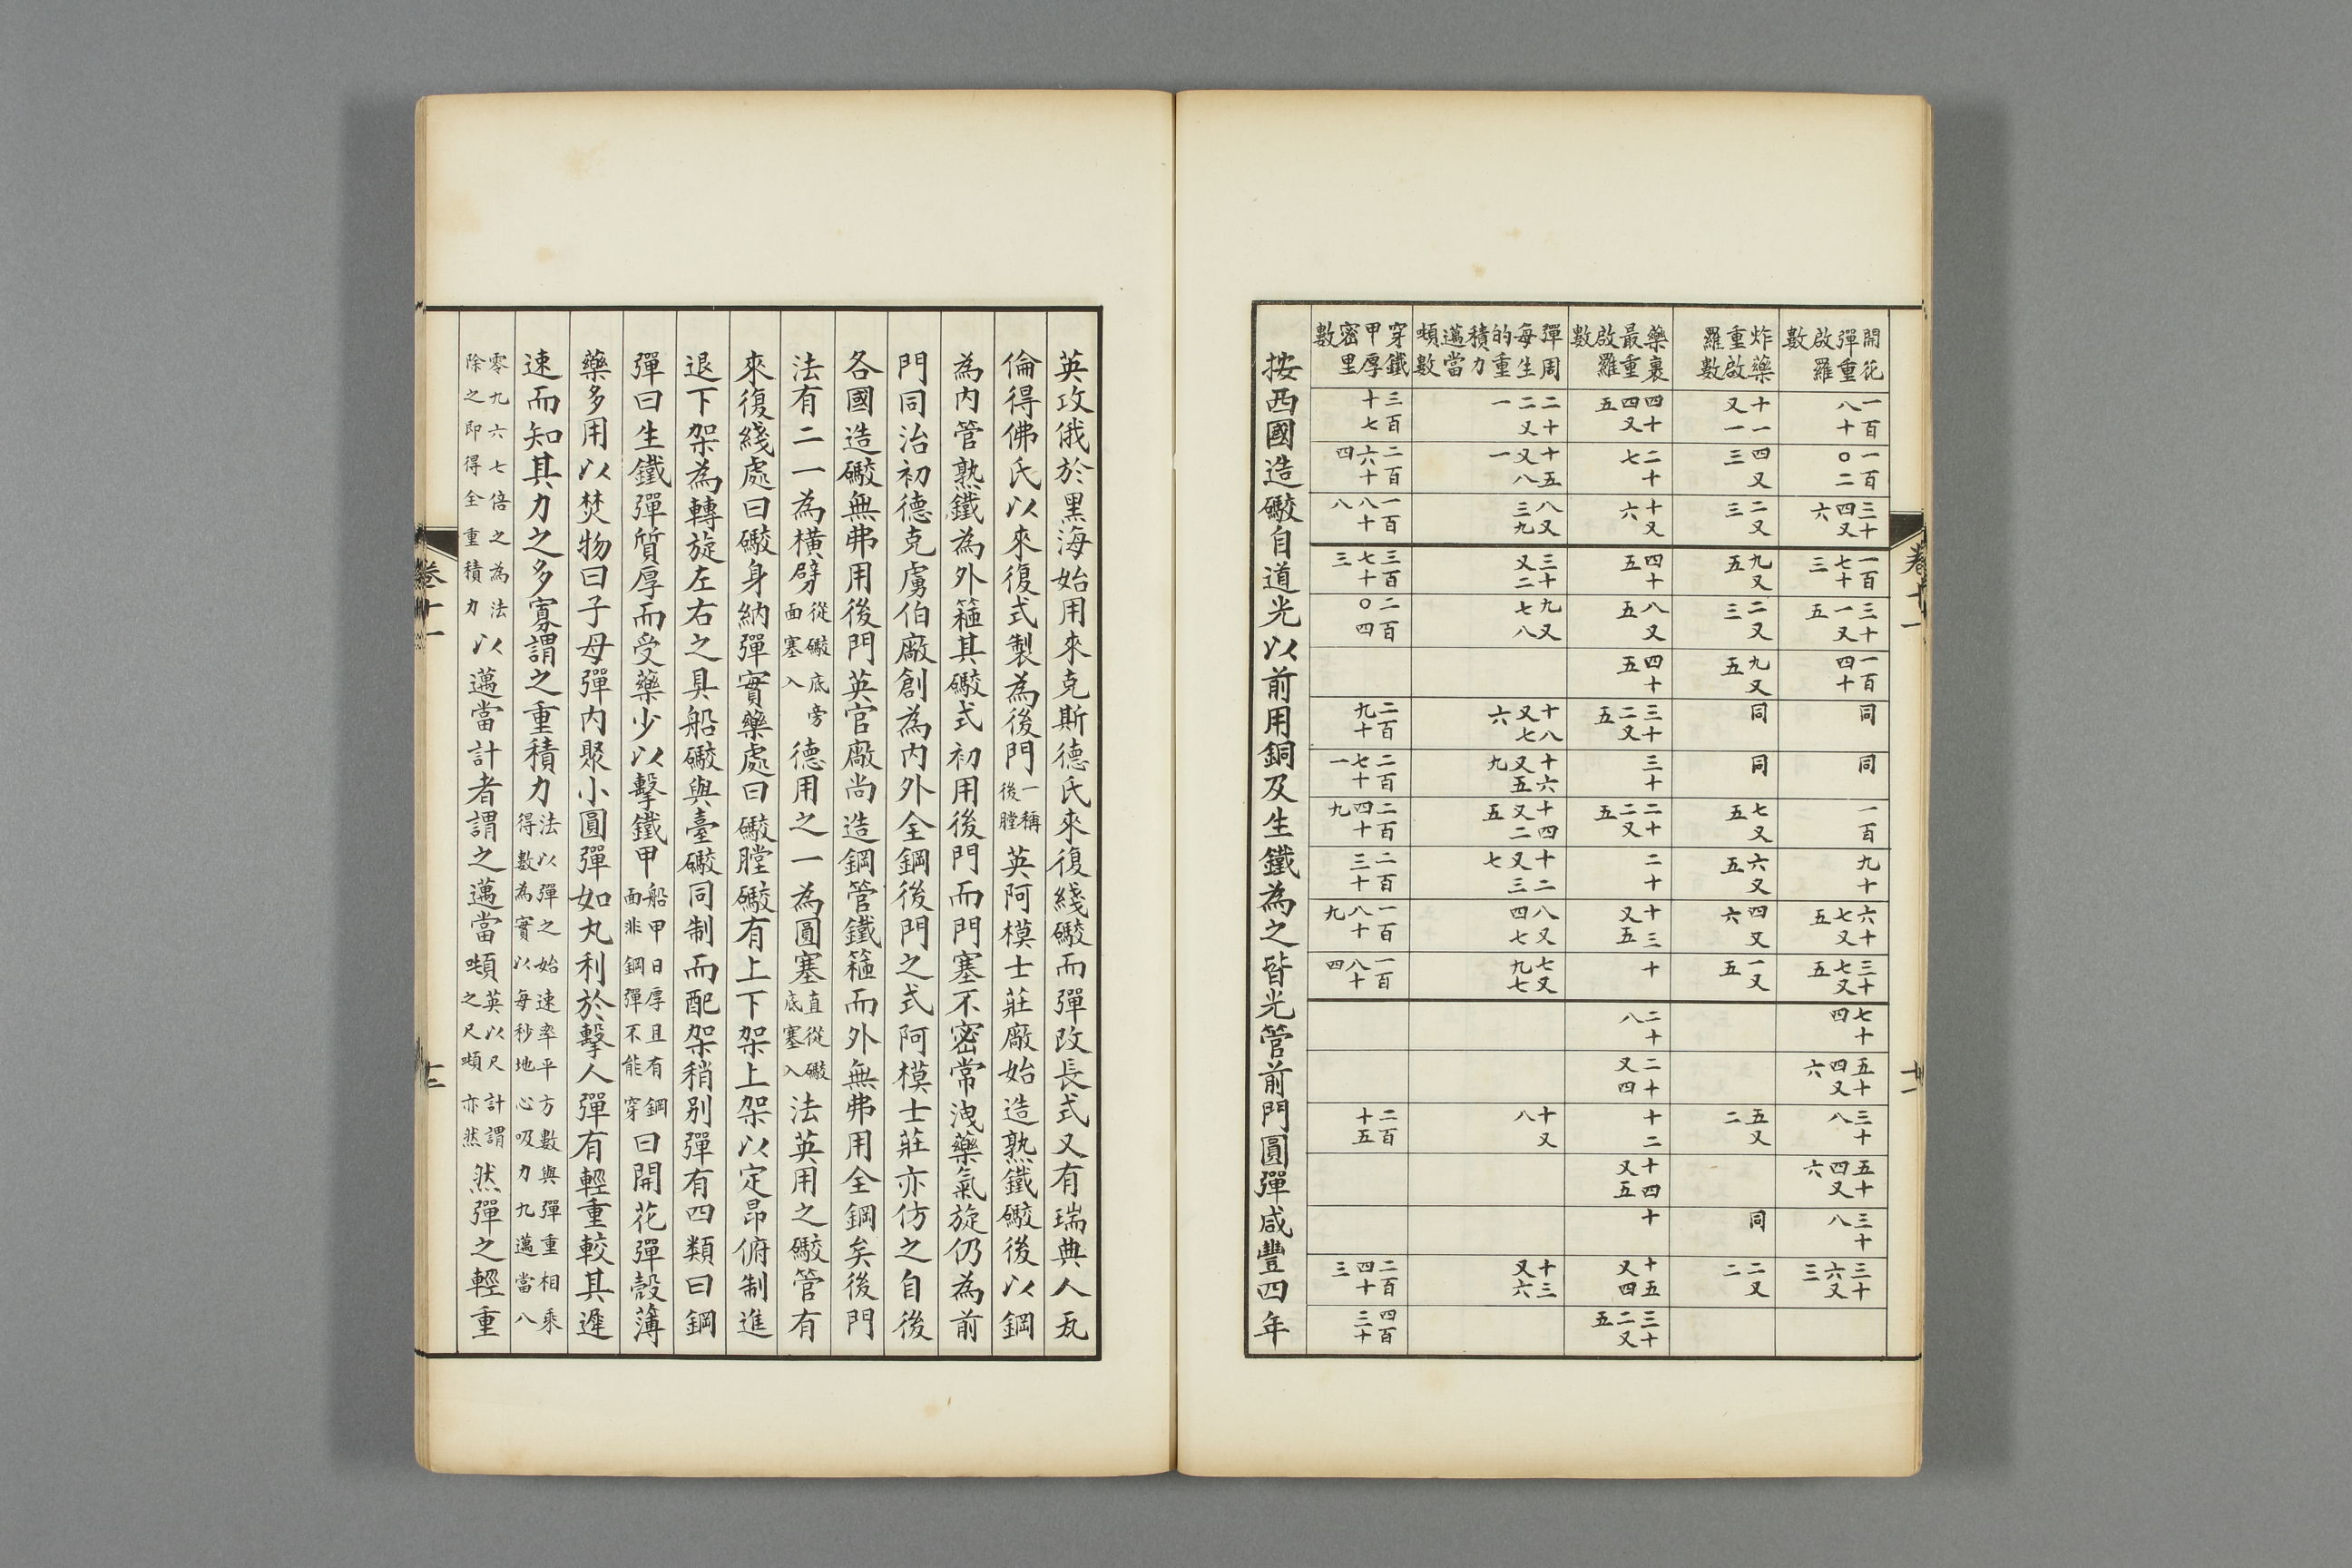 卷十一
十一
開花彈重啟羅數 一百八十 一百〇二 三十四又六 一百七十三 三十一又五 一百四十 同 同 一百 九十 六十七又五 三十七又五 七十四 五十四又六 三十八 五十四又六 三十八 三十六又三
炸藥重啟羅數 十一又一 四又三 二又三 九又五 二又三 九又五 同 同 七又五 六又五 四又六 一又五 五又二 同 二又二
藥裹最重啟羅數 四十四又五 二十七 十又六 四十五 八又五 四十五 三十二又五 三十 二十二又五 二十 十三又五 十 二十八 二十又四 十二 十四又五 十 十五又四 三十二又五
彈周每生的重積力邁當噸數 二十二又一 十五又八一 八又三九 三十又二 九又七八 十八又七六 十六又五九 十四又二五 十二又三七 八又四七 七又九七 十又八 十三又六
穿鐵甲厚密里數 三百十七 二百六十四 一百八十八 三百七十三 二百〇四 二百九十 二百七十一 二百四十九 二百三十 一百八十九 一百八十四 二百十五 二百四十三 四百三十
按西國造礮自道光以前用銅及生鐵為之皆光管前門圓彈咸豐四年
英攻俄於黑海始用來克斯德氏來復綫礮而彈改長式又有瑞典人瓦
倫得佛氏以來復式製為後門一稱後膛英阿模士莊廠始造熟鐵礮後以鋼
為內管熟鐵為外箍其礮式初用後門而門塞不密常洩藥氣旋仍為前
門同治初德克虜伯廠創為內外全鋼後門之式阿模士莊亦仿之自後
各國造礮無弗用後門英官廠尚造鋼管鐵箍而外無弗用全鋼矣後門
法有二一為橫劈從礮底旁面塞入德用之一為圓塞直從礮底塞入法英用之礮管有
來復綫處曰礮身納彈實藥處曰礮膛礮有上下架上架以定昂俯制進
退下架為轉旋左右之具船礮與臺礮同制而配架稍別彈有四類曰鋼
彈曰生鐵彈質厚而受藥少以擊鐵甲船甲日厚且有鋼面非鋼彈不能穿曰開花彈殼薄
藥多用以焚物曰子母彈內聚小圓彈如丸利於擊人彈有輕重較其遲
速而知其力之多寡謂之重積力法以彈之始速率平方數與彈重相乘得數為實以每秒地心吸力九邁當八
零九六七倍之為法除之即得全重積力以邁當計者謂之邁當噸英以尺計謂之尺噸亦然然彈之輕重
卷十一
十二